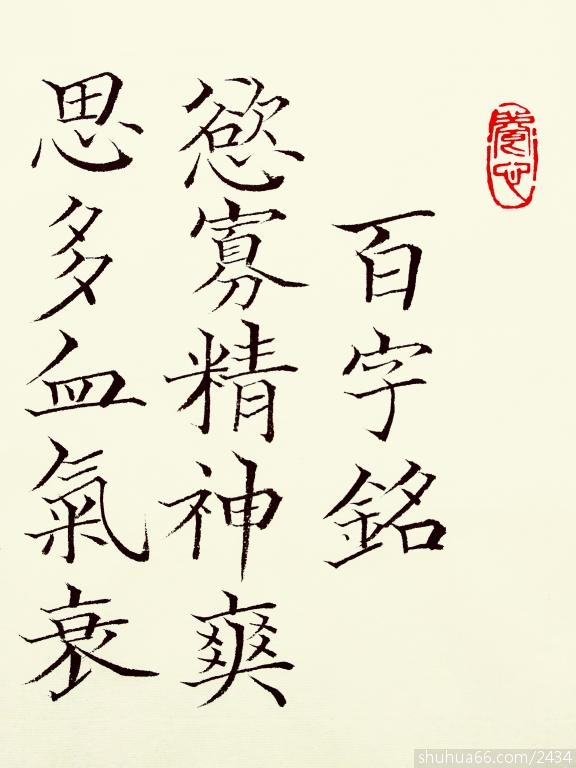 養心
百字銘
慾寡精神爽
思多血氣衰
shuhua66.com/2434